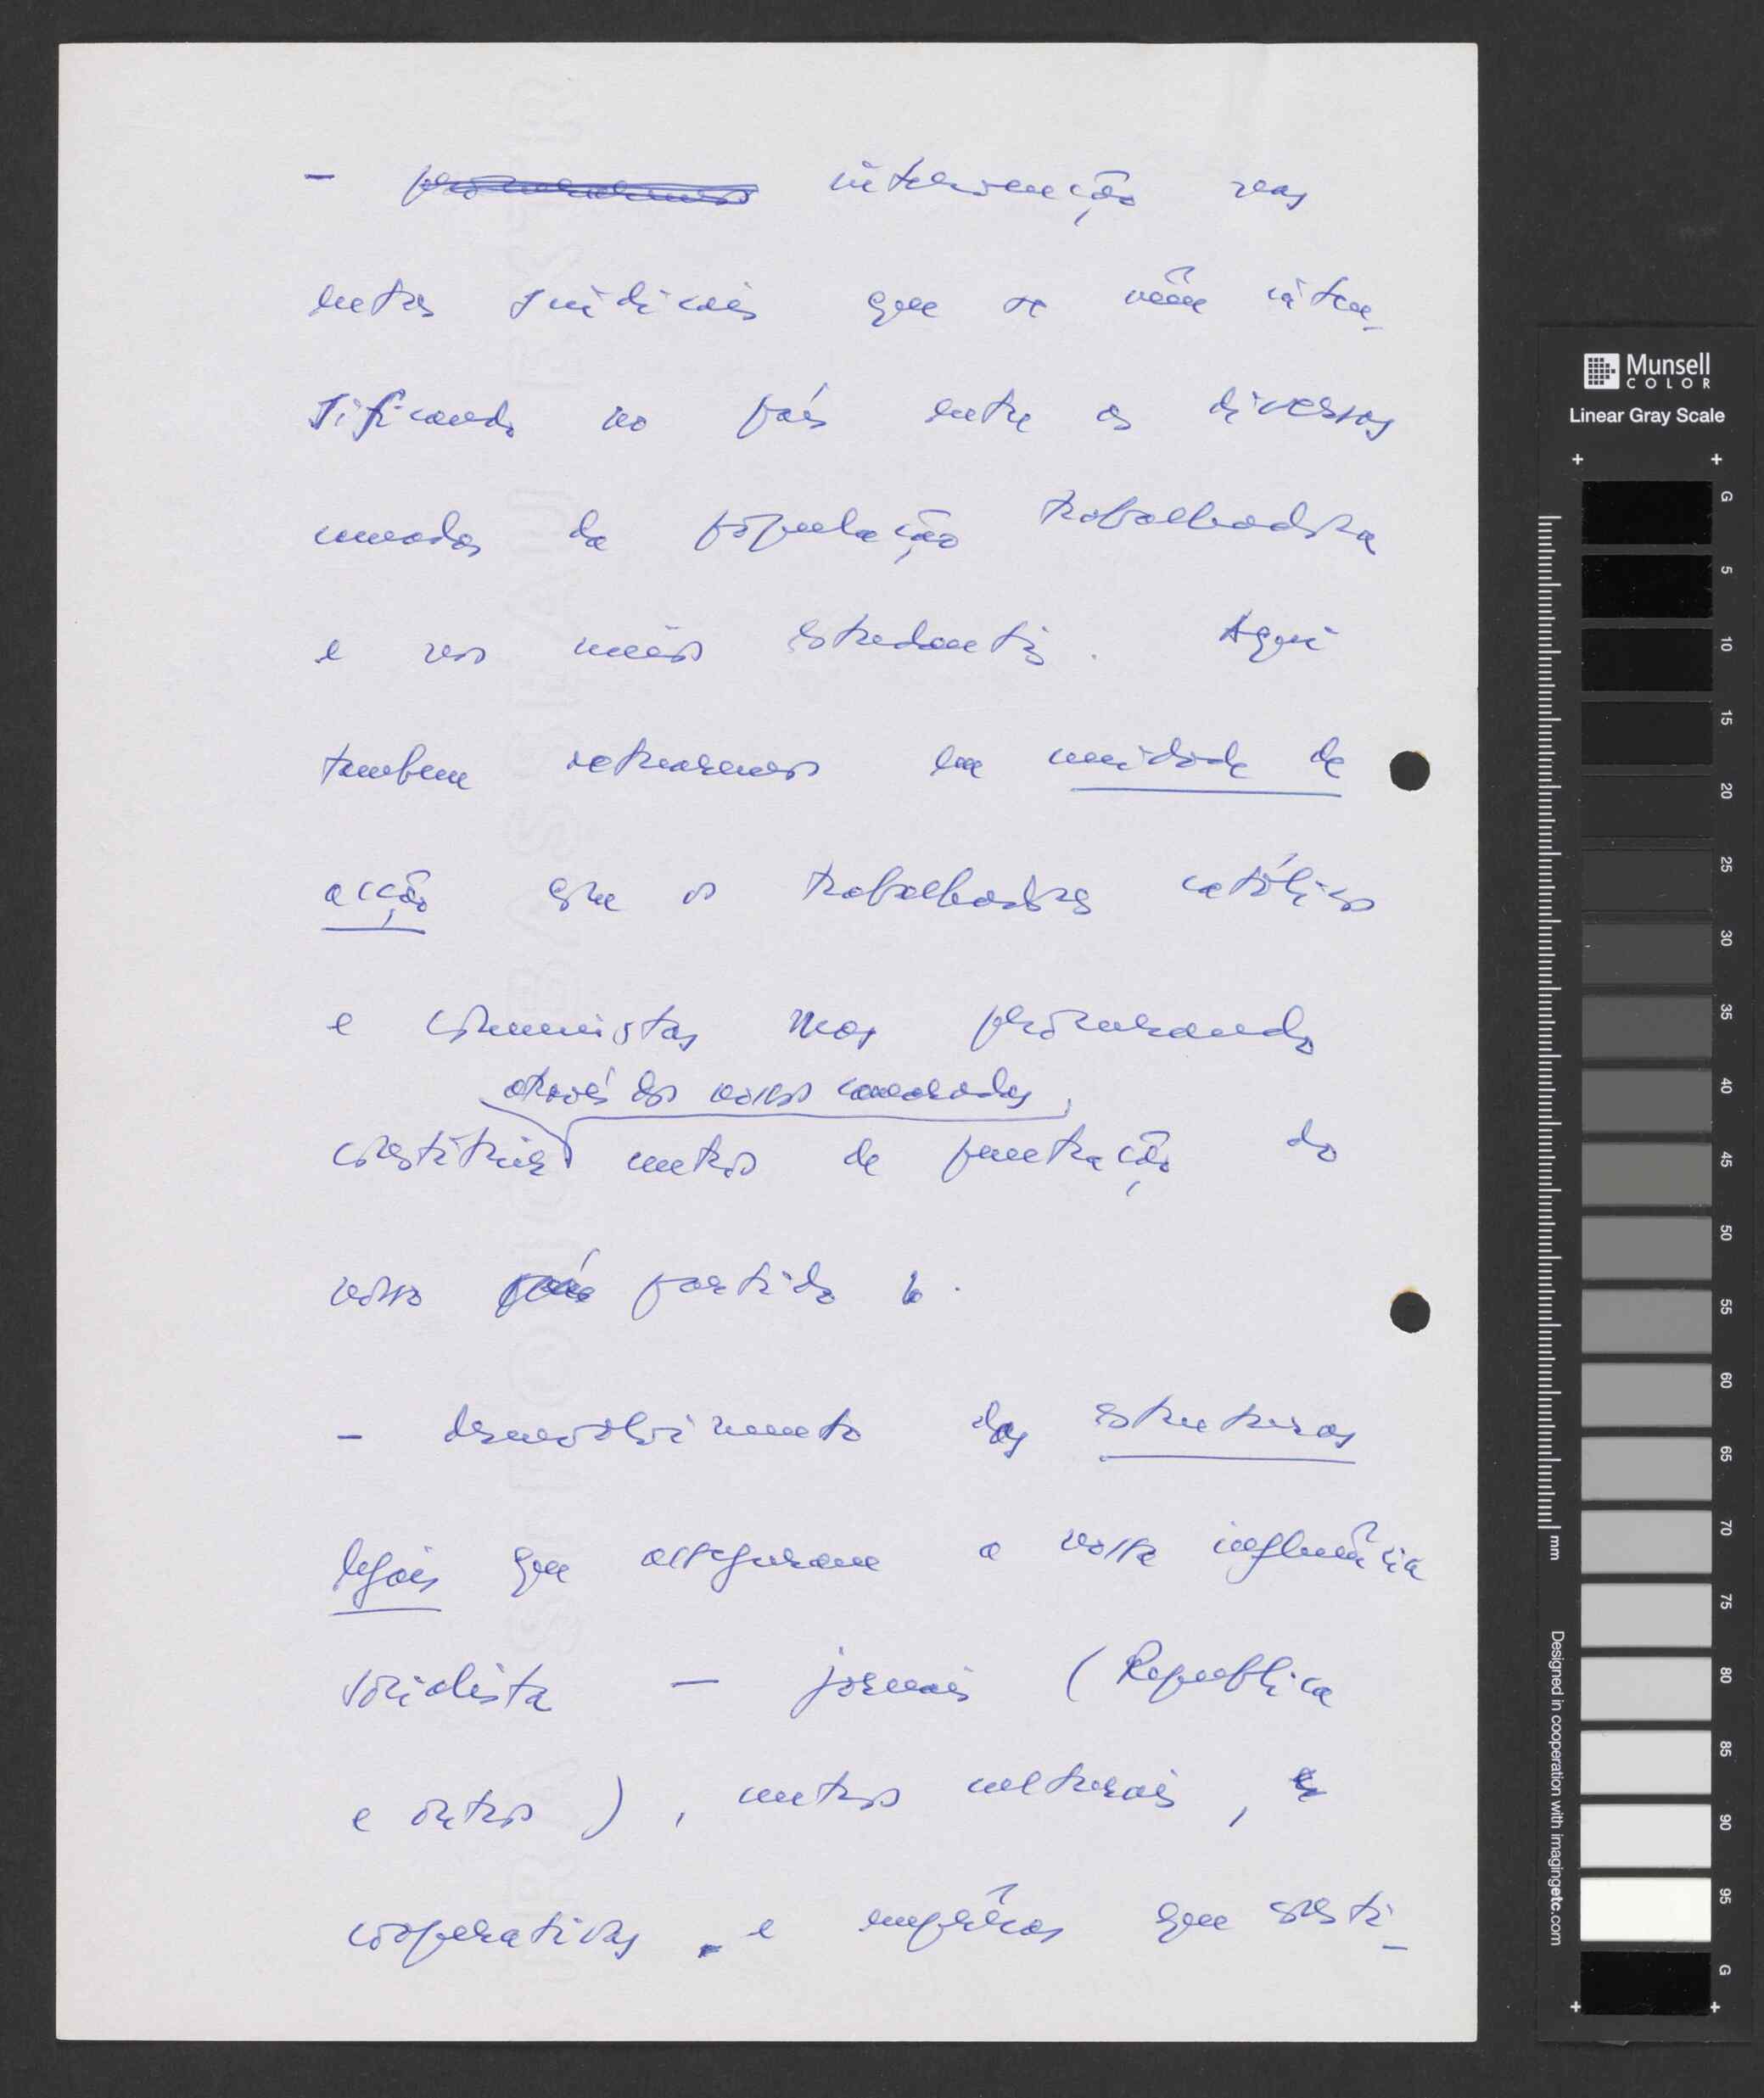 - ~~procuraremos~~ intervenção nas
lutas sindicais que se vêm inten-
sificando no país entre as diversas
camadas da população trabalhadora
e nos meios estudantis. Aqui
tambem actuaremos em unidade de
acção com os trabalhadores católicos
e comunistas mas procurando
através dos nossos camaradas,
constituir centros de penetração do
nosso partido.
- desenvolvimento das estruturas
legais que asseguram a nossa influência
socialista — jornais (Republica
e outros), centros culturais,
cooperativas e emprêsas que consti-
Munsell
COLOR
Linear Gray Scale
G
5
10
15
20
25
30
35
40
45
50
55
60
65
70
75
80
85
90
95
G
mm
Designed in cooperation with imagingetc.com